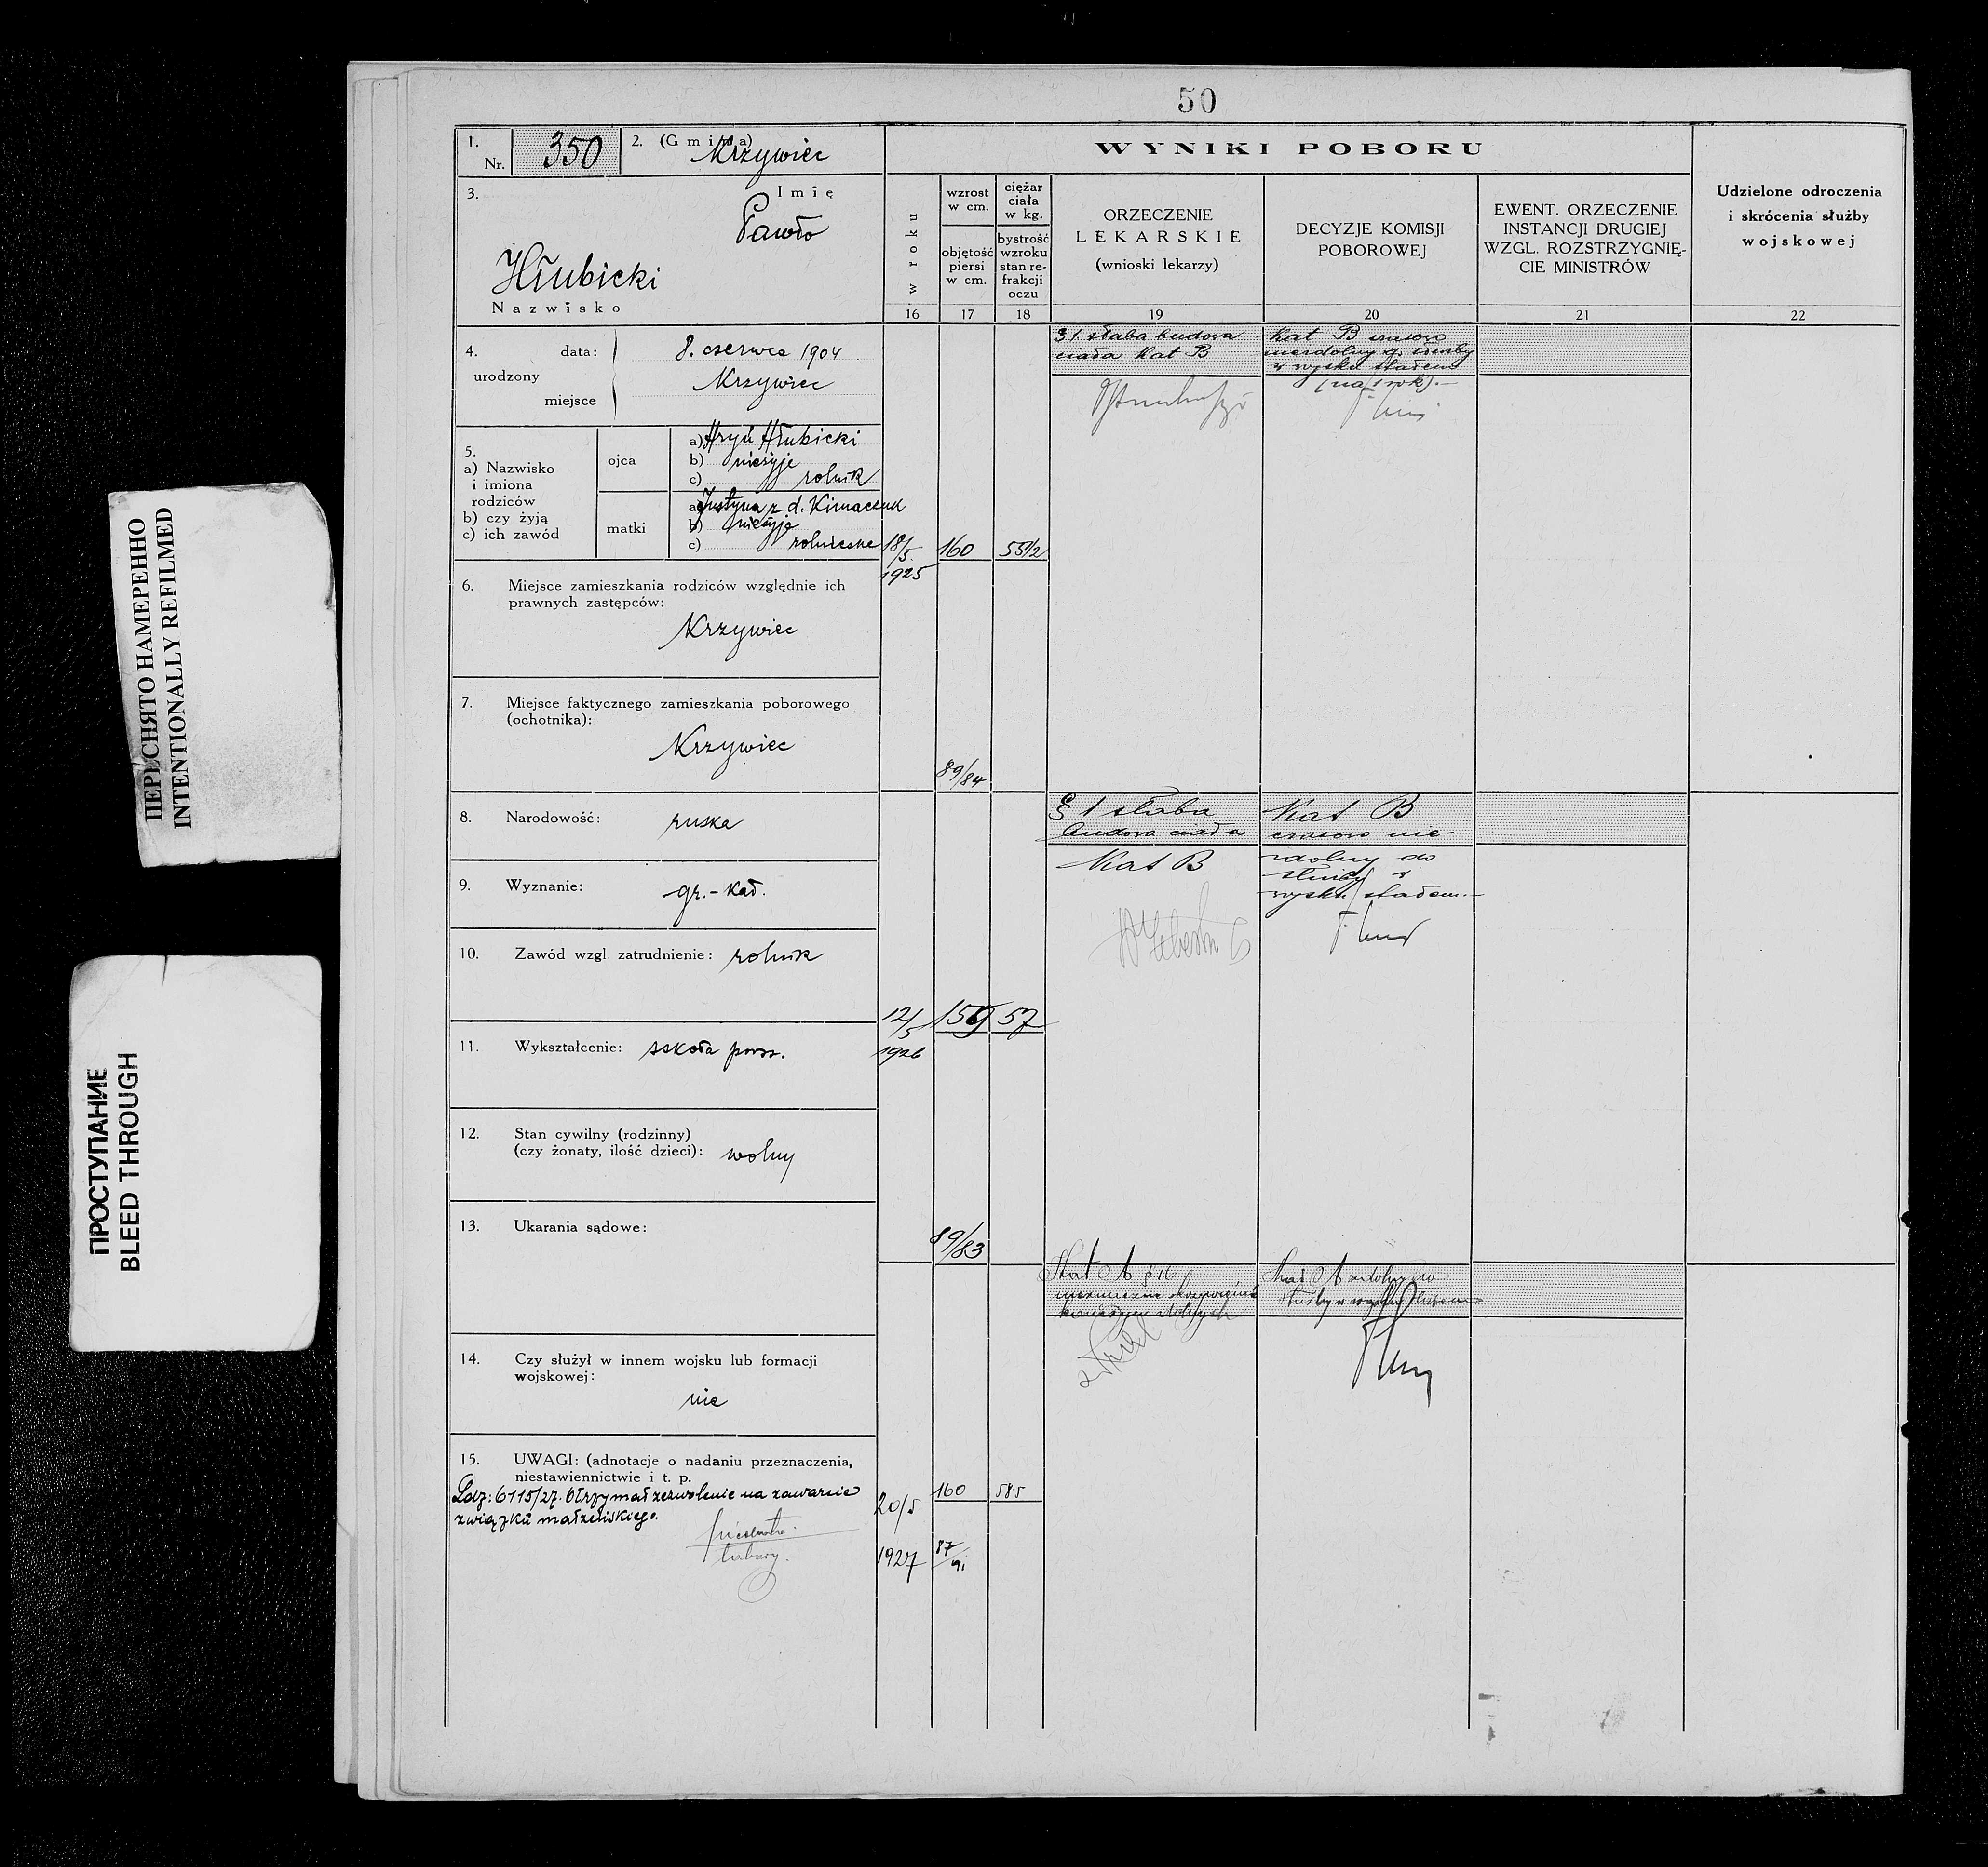 50
1. Nr. 350
2. (Gmina) Krzywiec
3. Imię
Pawło
Hłubicki
Nazwisko
4. urodzony
data: 8. czerwca 1904
miejsce Krzywiec
5.
a) Nazwisko
i imiona
rodziców
b) czy żyją
c) ich zawód
ojca
a) Hryń Hłubicki
b) nieżyje
c) rolnik
matki
a) Justyna z d. Kimaczuk
b) nieżyje
c) rolniczka
6. Miejsce zamieszkania rodziców względnie ich
prawnych zastępców:
Krzywiec
7. Miejsce faktycznego zamieszkania poborowego
(ochotnika):
Krzywiec
8. Narodowość: ruska
9. Wyznanie: gr.-kat.
10. Zawód wzgl. zatrudnienie: rolnik
11. Wykształcenie: szkoła powsz.
12. Stan cywilny (rodzinny)
(czy żonaty, ilość dzieci): wolny
13. Ukarania sądowe:
14. Czy służył w innem wojsku lub formacji
wojskowej:
nie
15. UWAGI: (adnotacje o nadaniu przeznaczenia,
niestawiennictwie i t. p.
Ldz: 6115/27. Otrzymał zezwolenie na zawarcie
związku małżeńskiego.
WYNIKI POBORU
w roku
16
wzrost
w cm.
objętość
piersi
w cm.
17
ciężar
ciała
w kg.
bystrość
wzroku
stan re-
frakcji
oczu
18
ORZECZENIE
LEKARSKIE
(wnioski lekarzy)
19
DECYZJE KOMISJI
POBOROWEJ
20
EWENT. ORZECZENIE
INSTANCJI DRUGIEJ
WZGL. ROZSTRZYGNIĘ-
CIE MINISTRÓW
21
Udzielone odroczenia
i skrócenia służby
wojskowej
22
18/5 1925
160
55 1/2
89/84
§ 1. słaba budowa
ciała Kat B
Kat B czasowo
niezdolny do służby
w wojsku stałem
(na 1 rok).
12/5 1926
159
57
89/83
§ 1 słaba
budowa ciała
Kat B
Kat B
czasowo nie-
zdolny do
służby w
wojsku stałem.
20/5
1927
160
585
87/91
Kat A § 16
Kat A zdolny do
służby w wojsku stałem
ПЕРЕСНЯТО НАМЕРЕННО
INTENTIONALLY REFILMED
ПРОСТУПАНИЕ
BLEED THROUGH